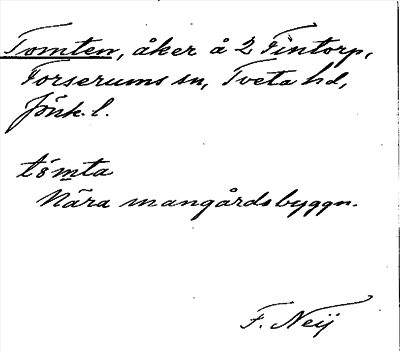 Tomten, åker å 2 Fintorp,
Forserums sn, Tveta hd,
Jönk. l.
Nära mangårdsbyggn.
F. Neij